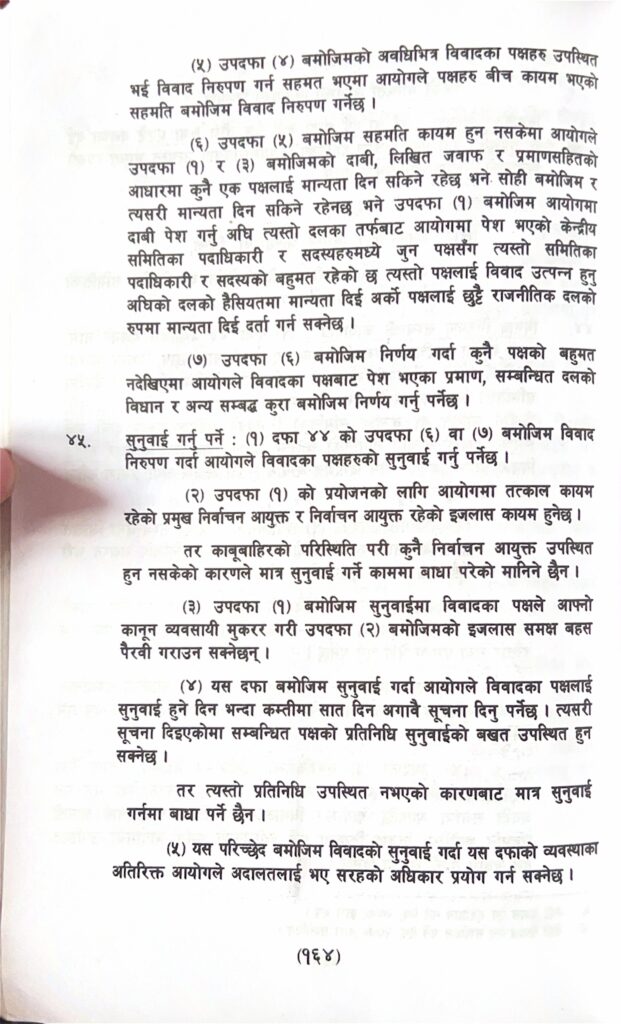 (५) उपदफा (४) बमोजिमको अवधिभित्र विवादका पक्षहरु उपस्थित
भई विवाद निरुपण गर्न सहमत भएमा आयोगले पक्षहरु बीच कायम भएको
सहमति बमोजिम विवाद निरुपण गर्नेछ ।
(६) उपदफा (५) बमोजिम सहमति कायम हुन नसकेमा आयोगले
उपदफा (१) र (३) बमोजिमको दाबी, लिखित जवाफ र प्रमाणसहितको
आधारमा कुनै एक पक्षलाई मान्यता दिन सकिने रहेछ भने सोही बमोजिम र
त्यसरी मान्यता दिन सकिने रहेनछ भने उपदफा (१) बमोजिम आयोगमा
दाबी पेश गर्नु अघि त्यस्तो दलका तर्फबाट आयोगमा पेश भएको केन्द्रीय
समितिका पदाधिकारी र सदस्यहरुमध्ये जुन पक्षसँग त्यस्तो समितिका
पदाधिकारी र सदस्यको बहुमत रहेको छ त्यस्तो पक्षलाई विवाद उत्पन्न हुनु
अघिको दलको हैसियतमा मान्यता दिई अर्को पक्षलाई छुट्टै राजनीतिक दलको
रुपमा मान्यता दिई दर्ता गर्न सक्नेछ ।
(७) उपदफा (६) बमोजिम निर्णय गर्दा कुनै पक्षको बहुमत
नदेखिएमा आयोगले विवादका पक्षबाट पेश भएका प्रमाण, सम्बन्धित दलको
विधान र अन्य सम्बद्ध कुरा बमोजिम निर्णय गर्नु पर्नेछ ।
४५. सुनुवाई गर्नु पर्ने : (१) दफा ४४ को उपदफा (६) वा (७) बमोजिम विवाद
निरुपण गर्दा आयोगले विवादका पक्षहरुको सुनुवाई गर्नु पर्नेछ ।
(२) उपदफा (१) को प्रयोजनको लागि आयोगमा तत्काल कायम
रहेको प्रमुख निर्वाचन आयुक्त र निर्वाचन आयुक्त रहेको इजलास कायम हुनेछ ।
तर काबूबाहिरको परिस्थिति परी कुनै निर्वाचन आयुक्त उपस्थित
हुन नसकेको कारणले मात्र सुनुवाई गर्ने काममा बाधा परेको मानिने छैन ।
(३) उपदफा (१) बमोजिम सुनुवाईमा विवादका पक्षले आफ्नो
कानून व्यवसायी मुकरर गरी उपदफा (२) बमोजिमको इजलास समक्ष बहस
पैरवी गराउन सक्नेछन् ।
(४) यस दफा बमोजिम सुनुवाई गर्दा आयोगले विवादका पक्षलाई
सुनुवाई हुने दिन भन्दा कम्तीमा सात दिन अगावै सूचना दिनु पर्नेछ । त्यसरी
सूचना दिइएकोमा सम्बन्धित पक्षको प्रतिनिधि सुनुवाईको बखत उपस्थित हुन
सक्नेछ ।
तर त्यस्तो प्रतिनिधि उपस्थित नभएको कारणबाट मात्र सुनुवाई
गर्नमा बाधा पर्ने छैन ।
(५) यस परिच्छेद बमोजिम विवादको सुनुवाई गर्दा यस दफाको व्यवस्थाका
अतिरिक्त आयोगले अदालतलाई भए सरहको अधिकार प्रयोग गर्न सक्नेछ ।
(१६४)